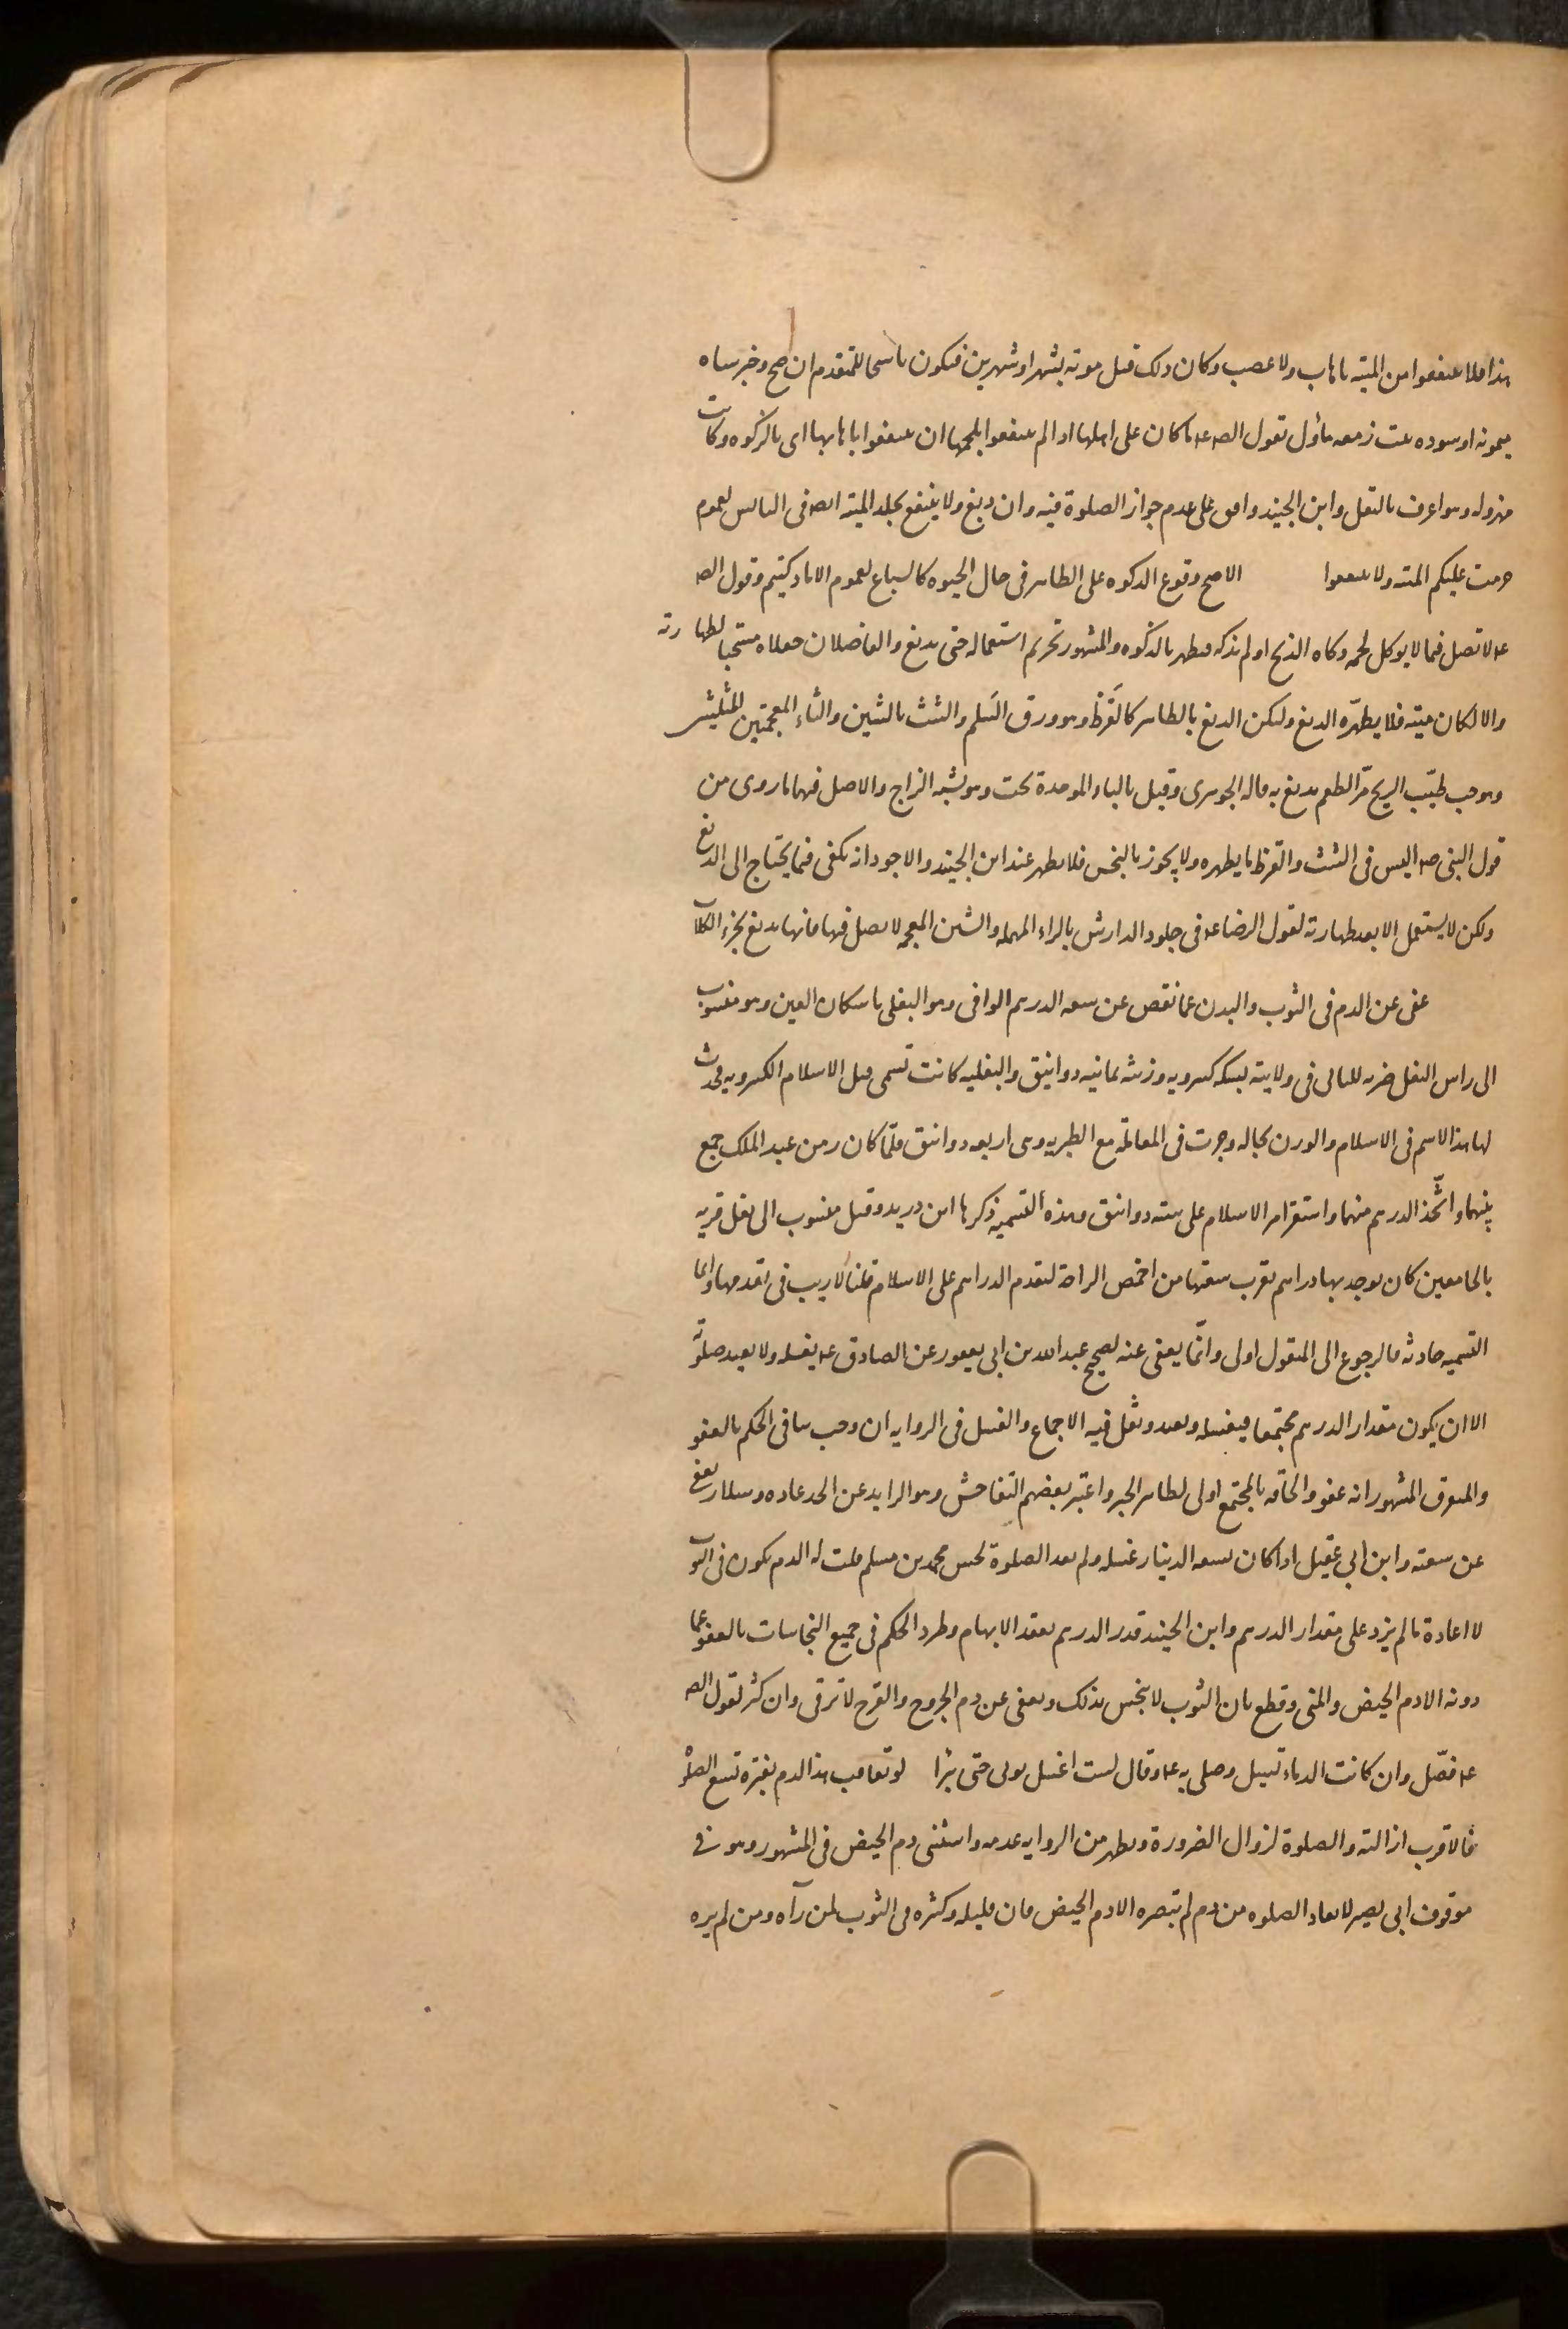 هذا فلا تنتفعوا من الميتة باهاب ولا عصب وكان ذلك قبل موته بشهر او شهرين فيكون ناسخا للمتقدم ان صح وخبر شاه
ميمونة او سوده بنت زمعه مأول بقول الص عه ما كان على اهلها اذا لم ينتفعوا بلحمها ان ينتفعوا باهابها اى بالذكوه وكانت
مهزوله وهو اعرف بالنقل وابن الجنيد وافق على عدم جواز الصلوة فيه وان دبغ ولا ينتفع بجلد الميته ايضا فى اليابس لعموم
حرمت عليكم الميته ولا تنتفعوا الاصح وقوع الذكوه على الطاهر فى حال الحيوه كالسباع لعموم الا ما ذكيتم وقول الص
عه لا تصل فيما لا يوكل لحمه ذكاه الذبح او لم يذكه فيطهر بالذكوه والمشهور تحريم استعماله حتى يدبغ والفاضلان جعلاه مستحبا لطهارته
والا لكان ميته فلا يطهّره الدبغ وليكن الدبغ بالطاهر كالقَرَظ وهو ورق السَلم والشث بالشين والثاء المعجمتين المثلثتين
وهو حب طيّب الريح مرّ الطعم يدبغ به قاله الجوهرى وقيل بالباء الموحدة تحت وهو يشبه الزاج والاصل فيهما ما روى من
قول النبى صه اليس فى الشث والقرظ ما يطهره ولا يجوز بالنجس فلا يطهر عند ابن الجنيد والاجود انه يكفى فيما يحتاج الى الدبغ
ولكن لا يستعمل الا بعد طهارته لقول الرضا عه فى جلود الدارش بالراء المهمله والشين المعجمه لا تصل فيها فانها تدبغ بخرء الكلاب
عفى عن الدم فى الثوب والبدن عما نقص عن سعه الدرهم الوافى وهو البغلى باسكان الغين وهو منسوب
الى راس البغل ضربه للثانى فى ولايته بسكه كسرويه وزنته ثمانيه دوانيق والبغليه كانت تسمى قبل الاسلام الكسرويه فحدث
لها هذا الاسم فى الاسلام والوزن بحاله وجرت فى المعاملة مع الطبريه وهى اربعه دوانق فلمّا كان زمن عبد الملك جمع
بينهما واتّخذ الدرهم منهما واستقر امر الاسلام على سته دوانق وهذه التسميه ذكرها ابن دريد وقيل منسوب الى بغل قريه
بالجامعين كان يوجد بها دراهم تقرب سعتها من اخمص الراحة لتقدم الدراهم على الاسلام قلنا لا ريب فى تقدمها وانما
التسميه حادثه فالرجوع الى المنقول اولى وانّما يعفى عنه لصحيح عبد الله بن ابى يعفور عن الصادق عه يغسله ولا يعيد صلوته
الا ان يكون مقدار الدرهم مجتمعا فيغسله ويعيد ونقل فيه الاجماع والغسل فى الروايه ان وجب ينافى الحكم بالعفو
والمتفرق المشهور انه عفو والحاقه بالمجتمع اولى لظاهر الخبر واعتبر بعضهم التفاحش وهو الزايد عن الحد عاده وسلار يعفى
عن سعته وابن ابى عقيل اذا كان بسعه الدينار غسله ولم يعد الصلوة لحسن محمد بن مسلم قلت له الدم يكون فى الثوب
لا اعادة ما لم يزد على مقدار الدرهم وابن الجنيد قدر الدرهم بعقد الابهام وطرد الحكم فى جميع النجاسات بالعفو عما
دونه الا دم الحيض والمنى وقطع بان الثوب لا ينجس بذلك ويعفى عن دم الجروح والقرح لا ترقى وان كثر لقول الص
عه فصّل وان كانت الدماء تسيل وصلى به عه وقال لست اغسل ثوبى حتى تبرأ لو تعاقب هذا الدم بفترة تسع الصلوة
فالاقرب ازالته والصلوة لزوال الضرورة ويظهر من الروايه عدمه واستثنى دم الحيض فى المشهور وهو فى
موقوف ابى بصير لا تعاد الصلوه من دم لم تبصره الا دم الحيض فان قليله وكثيره فى الثوب لمن رآه ومن لم يره